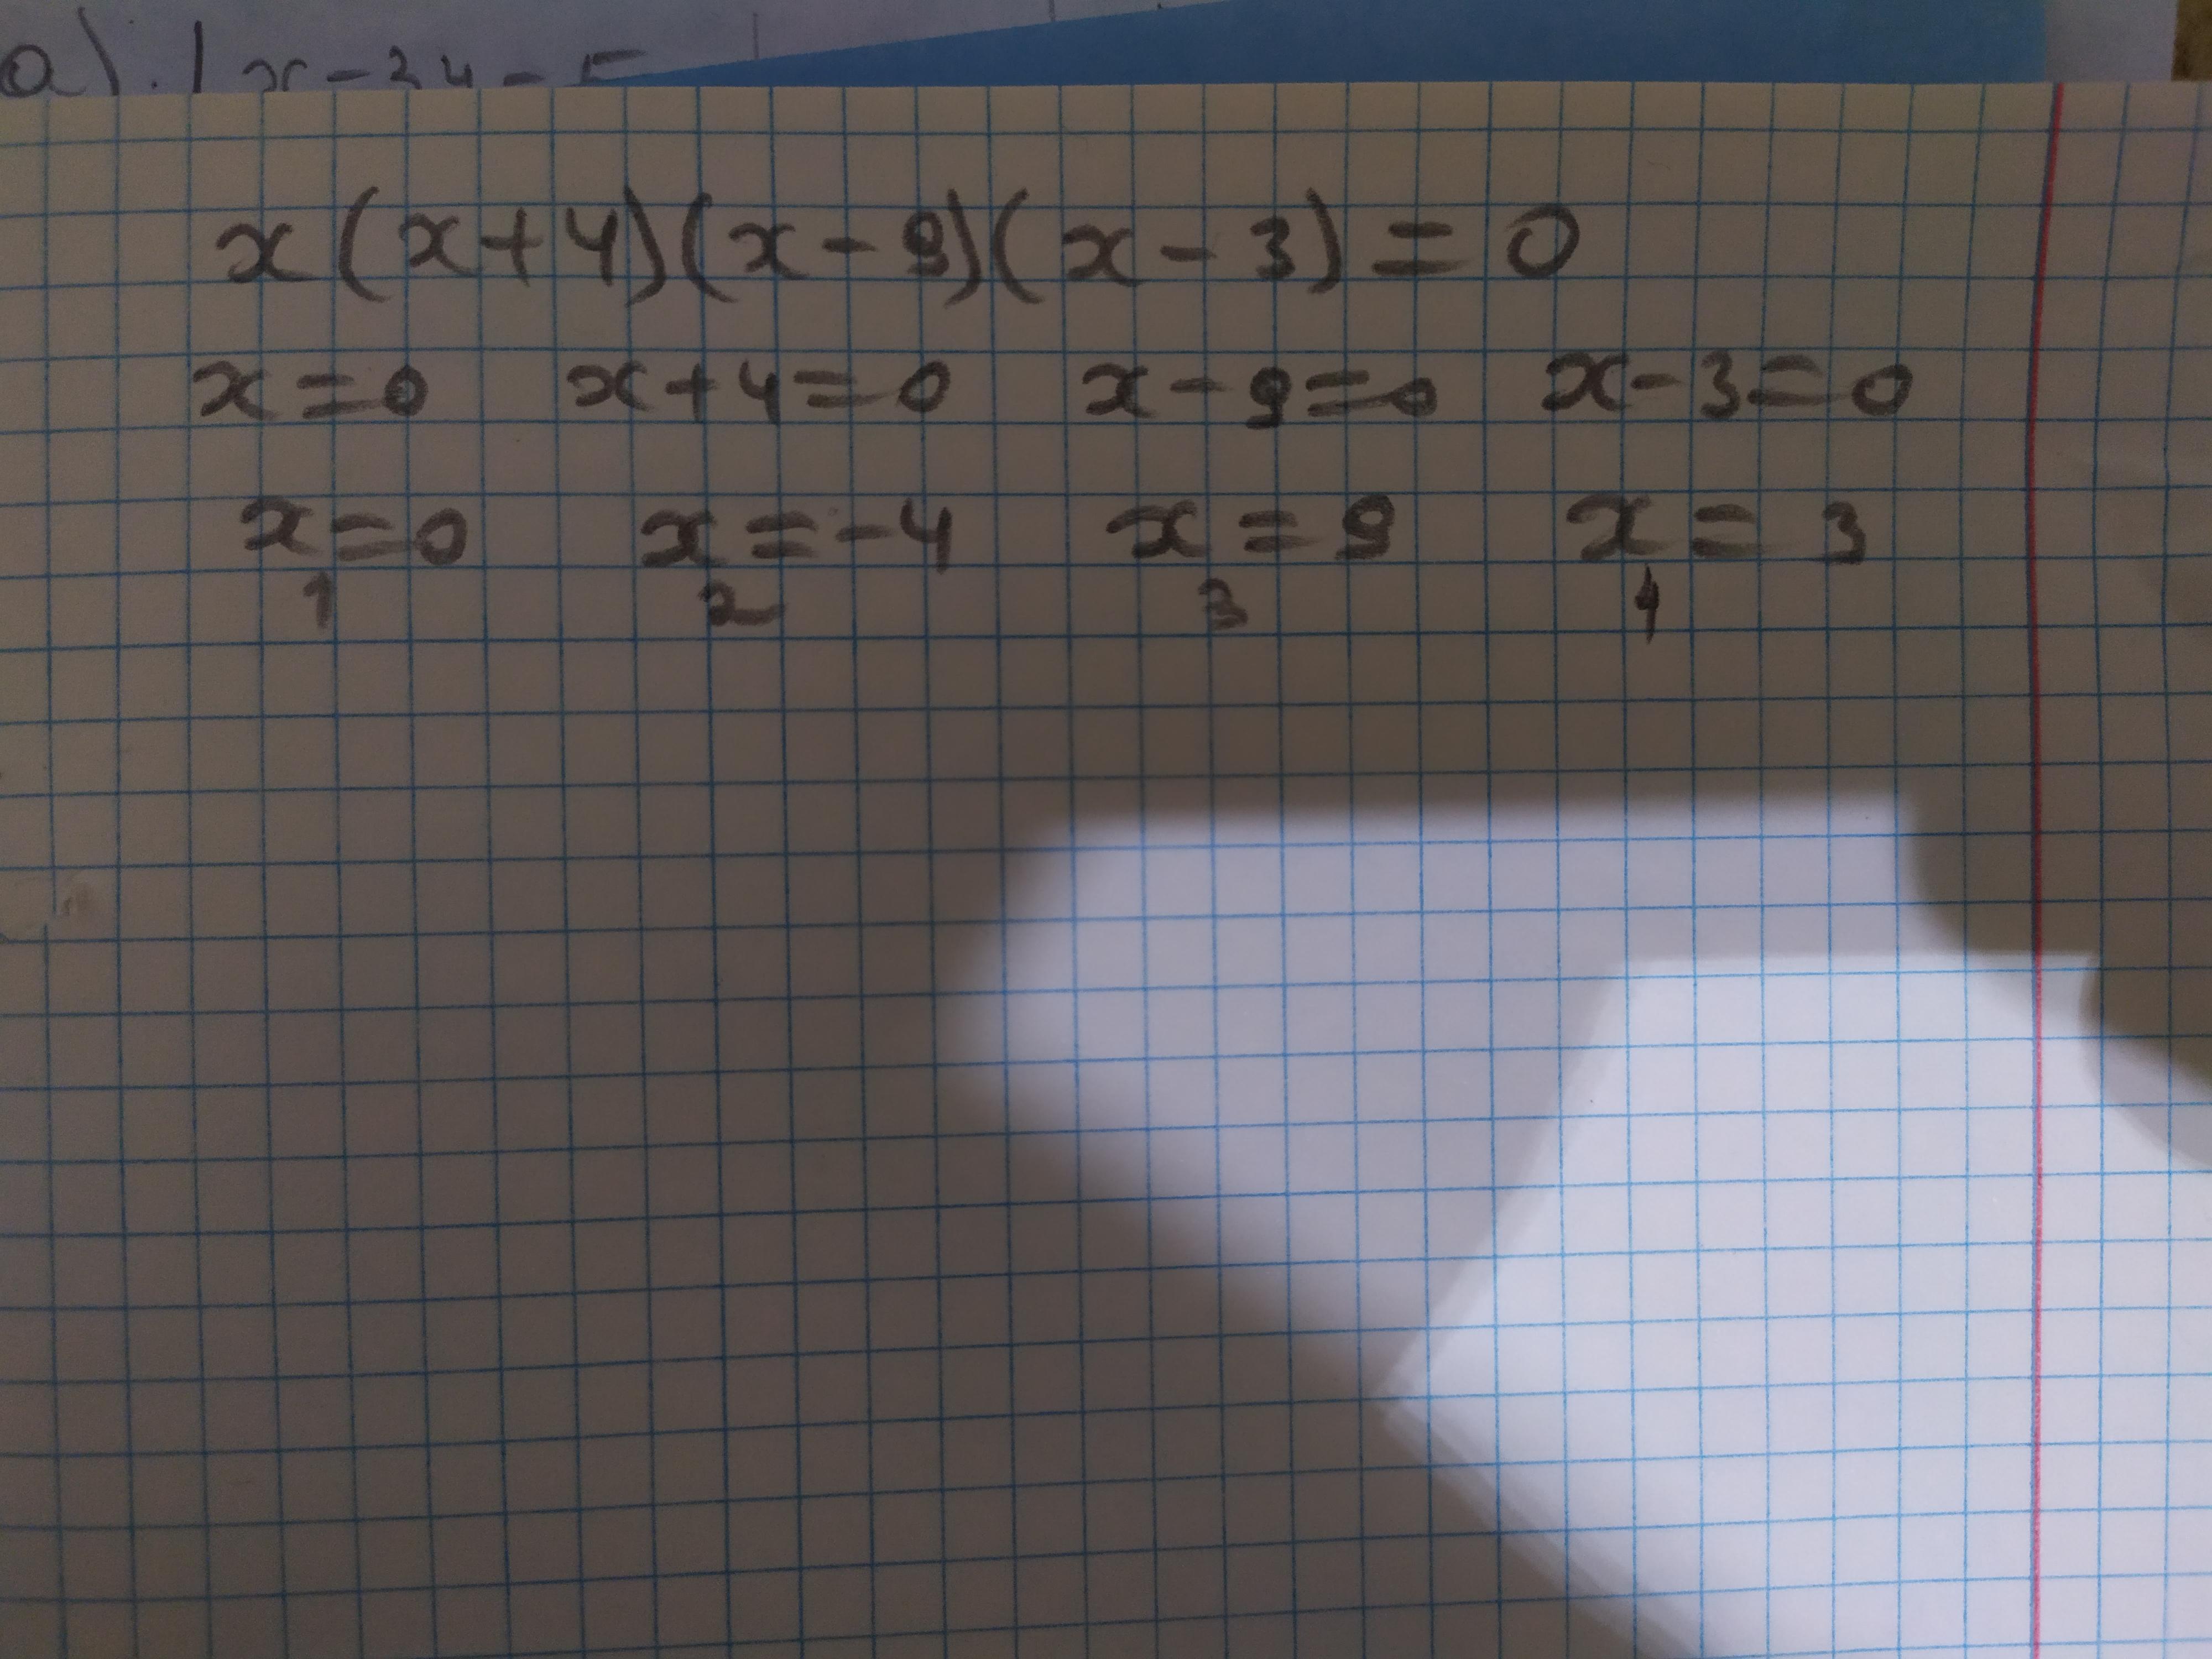 a)
x(x+4)(x-9)(x-3)=0
x=0 x+4=0 x-9=0 x-3=0
x₁=0 x₂=-4 x₃=9 x₄=3